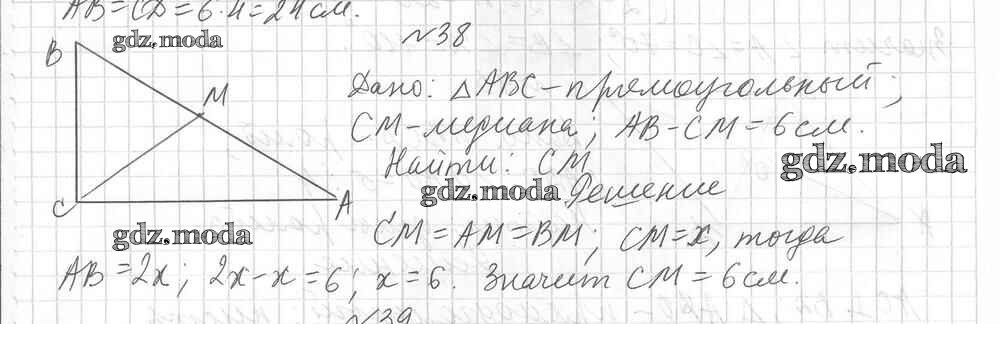 AB=CD=6·4=24см.
gdz.moda
№38
B
M
C
A
Дано: △ABC-прямоугольный;
CM-медиана; AB-CM=6см.
gdz.moda
Найти: CM
gdz.moda
Решение
gdz.moda
CM=AM=BM; CM=x, тогда
AB=2x; 2x-x=6; x=6. Значит CM=6см.
№39